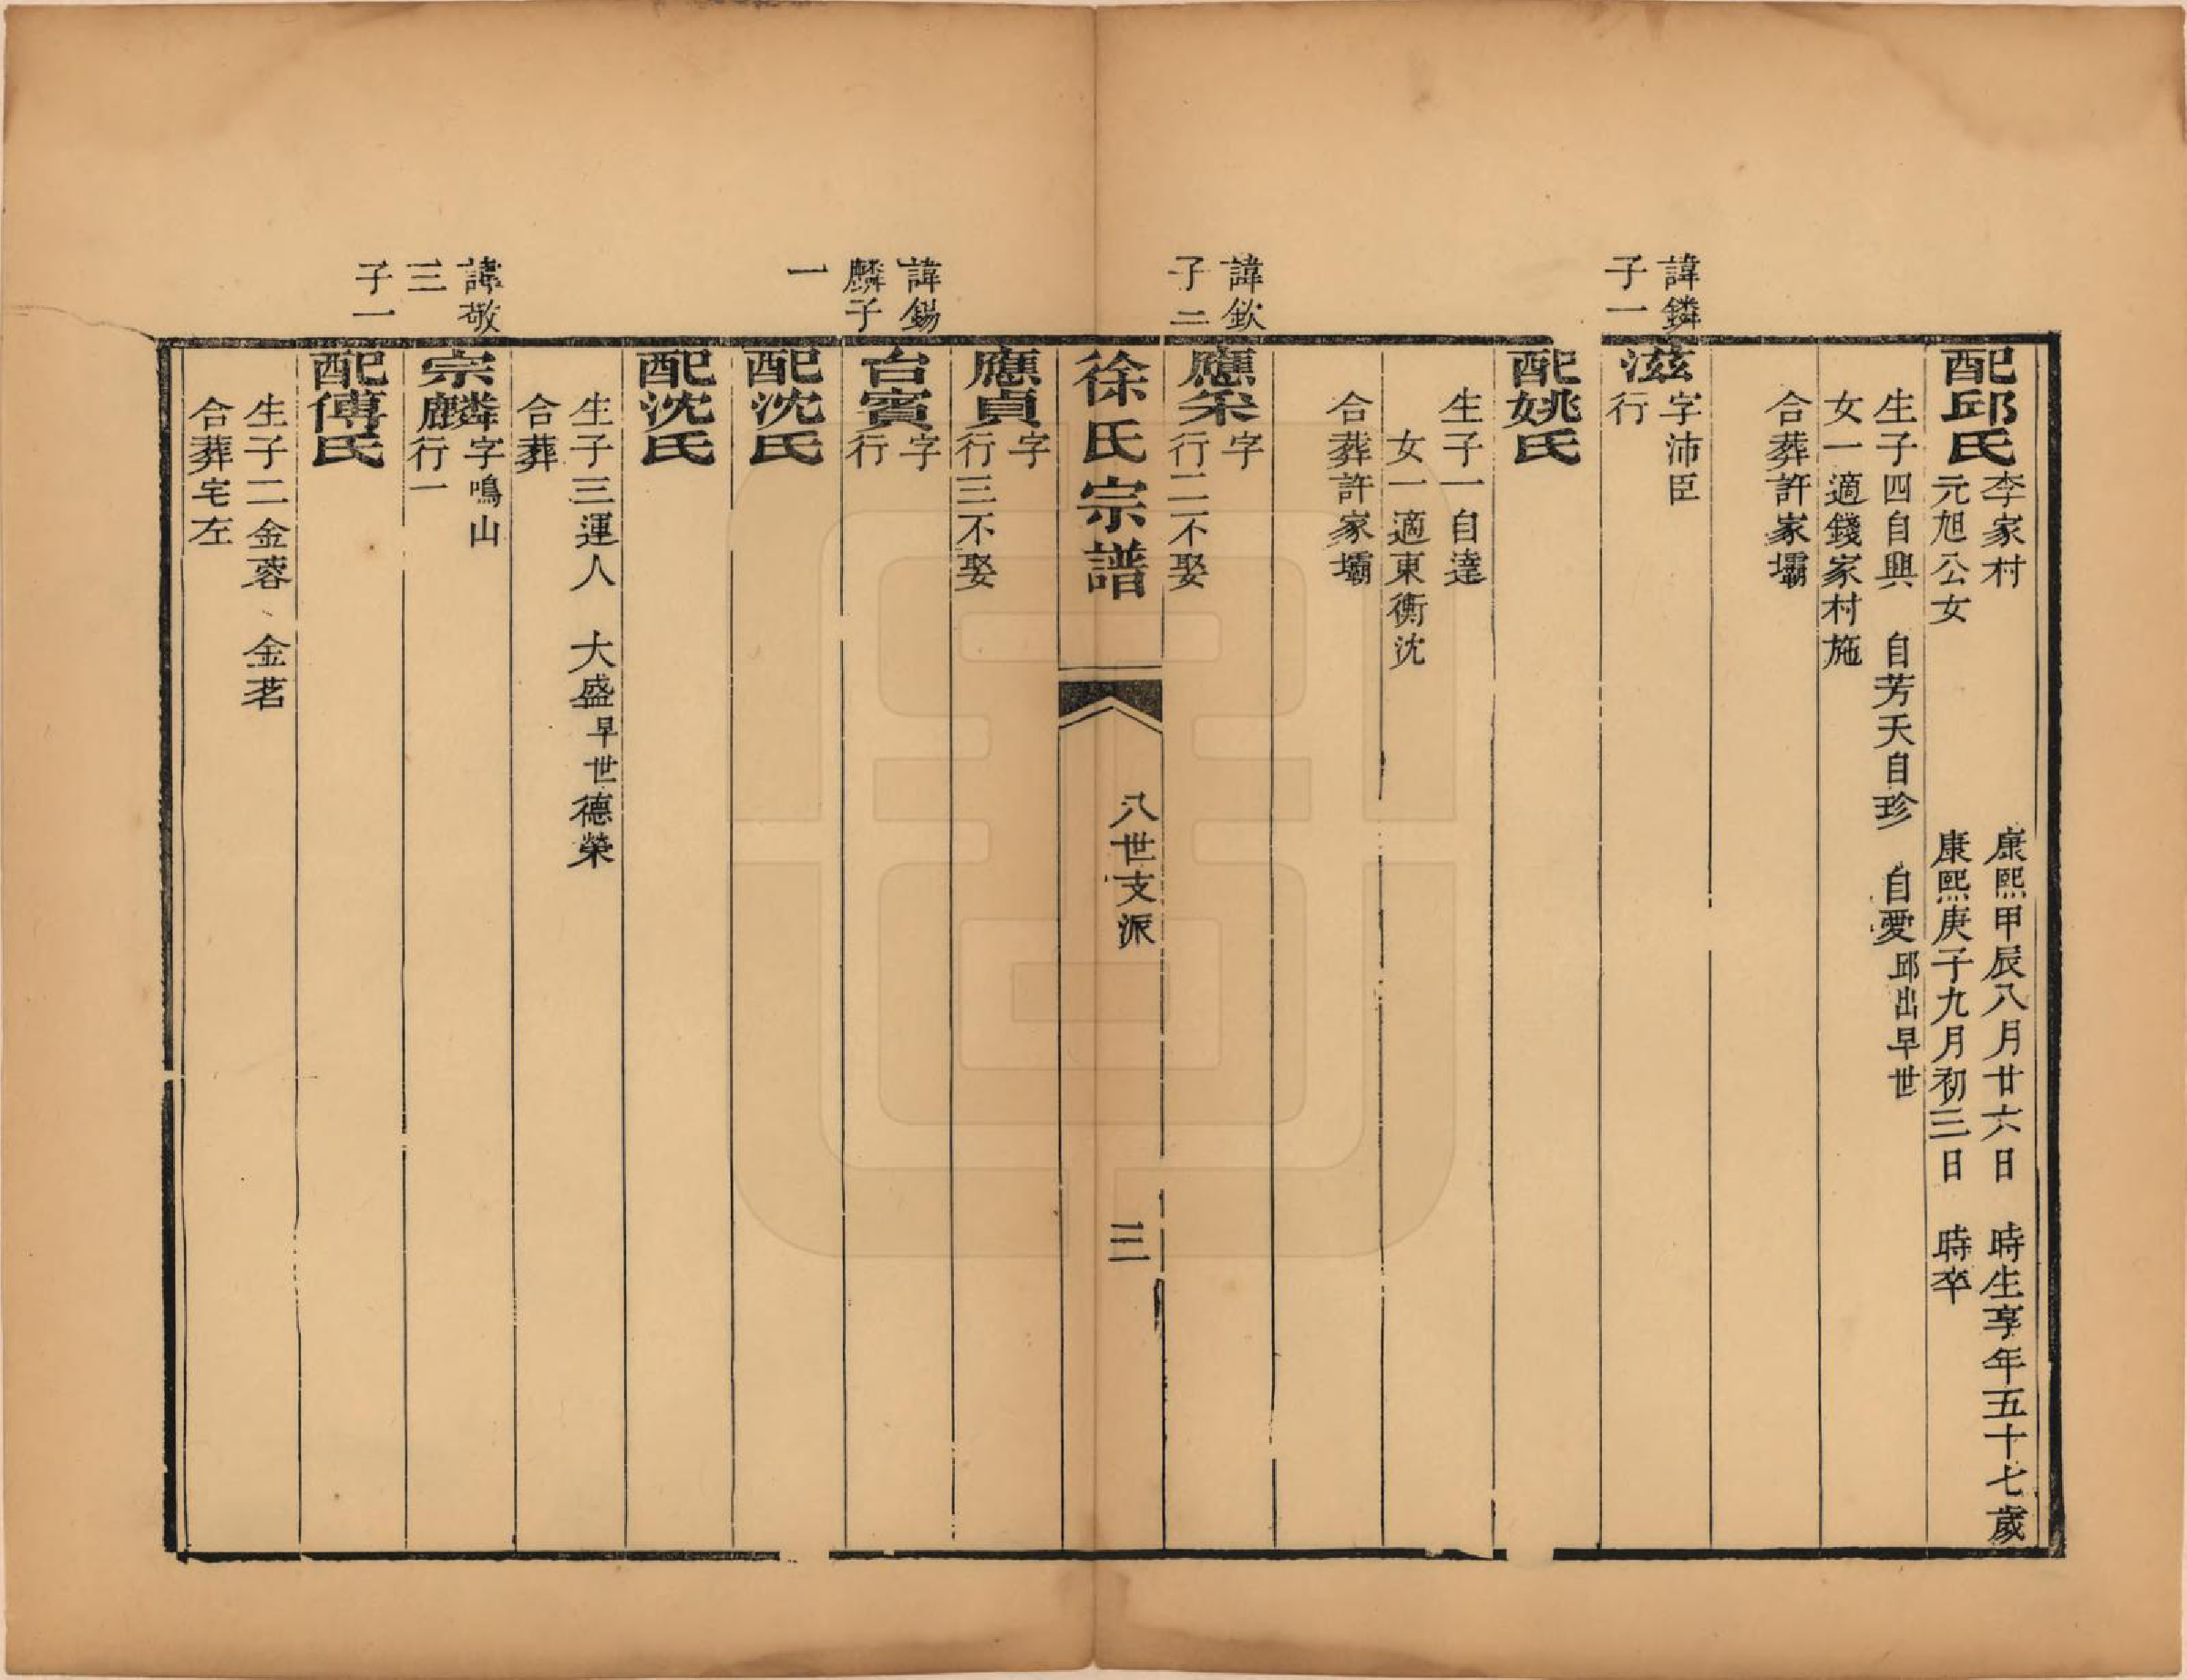 配邱氏
李家村
元旭公女
康熙甲辰八月廿六日　時生享年五十七歲
康熙庚子九月初三日　時卒
生子四自興　自芳夭自珍　自愛邱出早世
女一適錢家村施
合葬許家壩
諱鏻
子一
滋
字沛臣
行
配姚氏
生子一自達
女一適東衡沈
合葬許家壩
諱欽
子二
應
字
行二不娶
徐氏宗譜
八世支派
三
應貞
字
行三不娶
諱錫
麟子
一
台賓
字
行
配沈氏
配沈氏
生子三運人　大盛早世德榮
合葬
諱敬
三
子一
宗麟
字鳴山
行一
配傅氏
生子二金蓉、金茗
合葬宅左